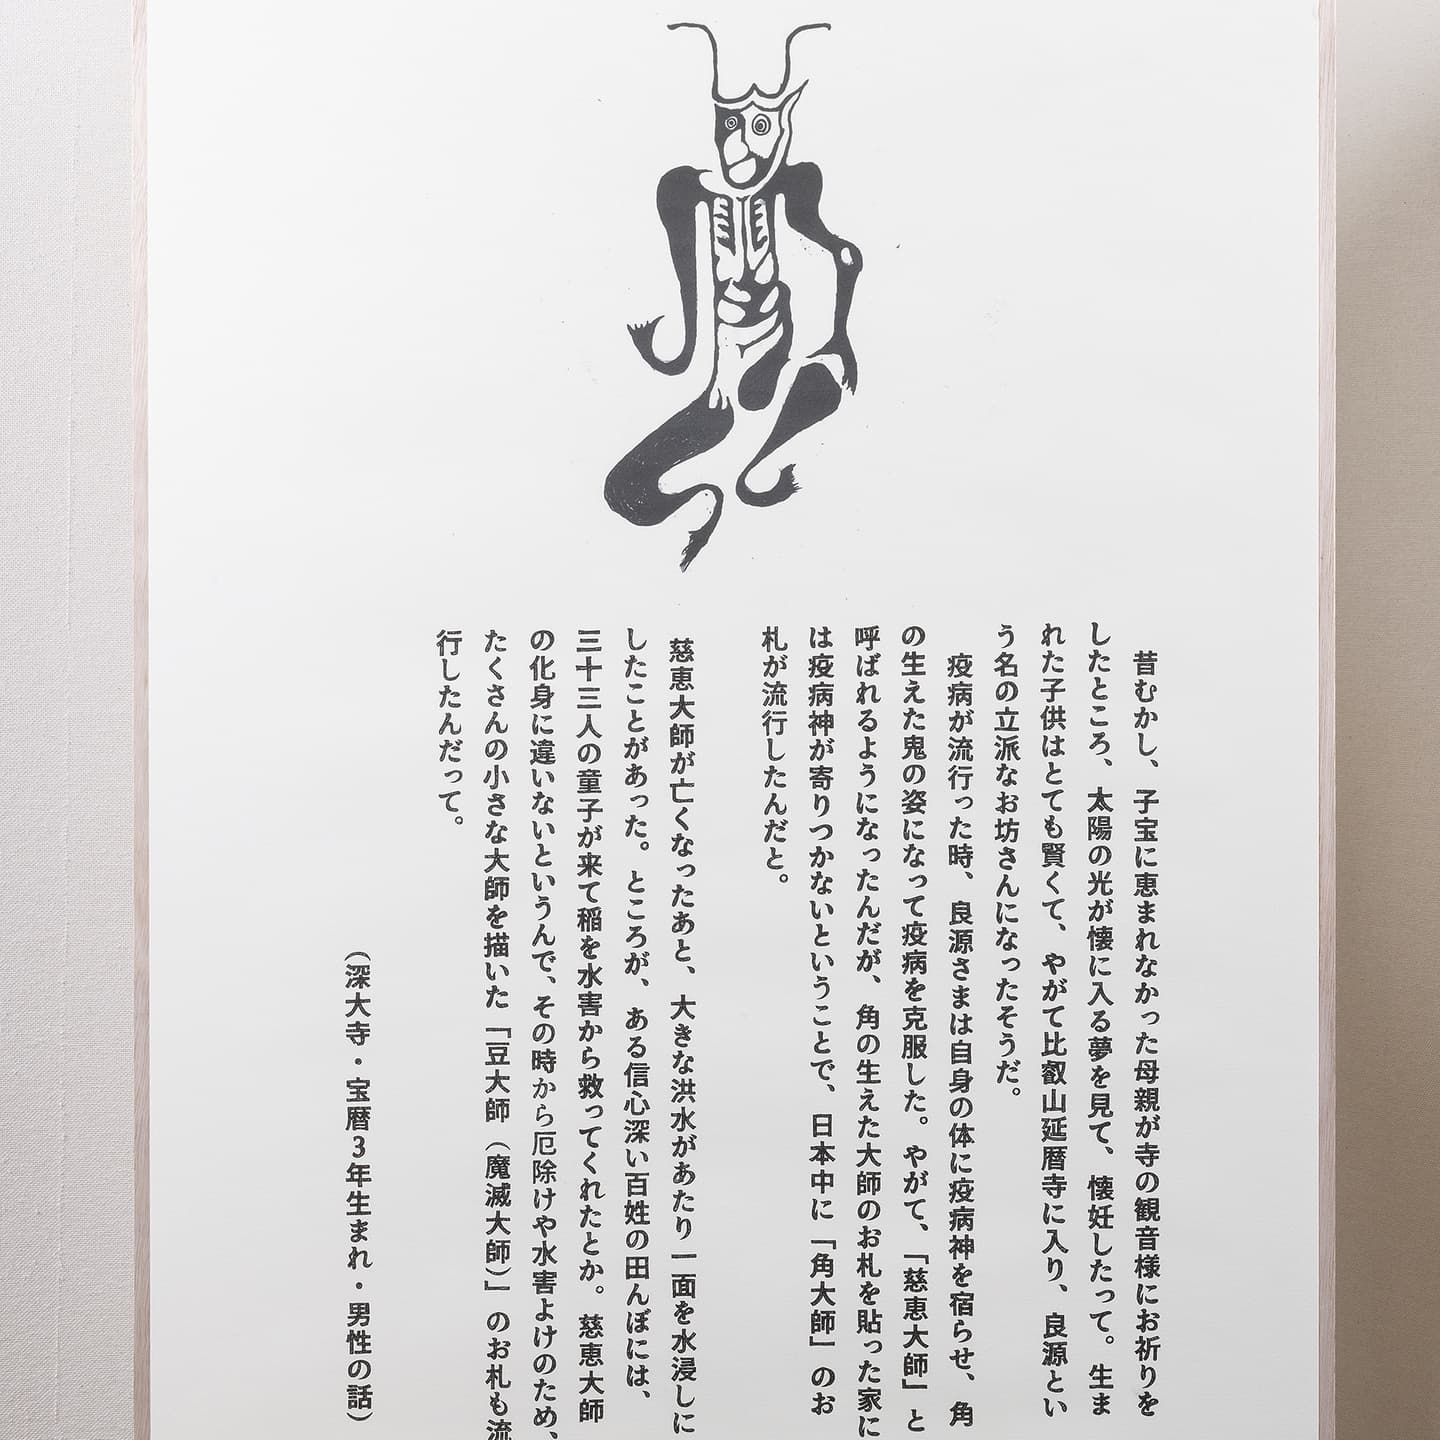 昔むかし、子宝に恵まれなかった母親が寺の観音様にお祈りを
したところ、太陽の光が懐に入る夢を見て、懐妊したって。生ま
れた子供はとても賢くて、やがて比叡山延暦寺に入り、良源とい
う名の立派なお坊さんになったそうだ。
疫病が流行った時、良源さまは自身の体に疫病神を宿らせ、角
の生えた鬼の姿になって疫病を克服した。やがて、「慈恵大師」と
呼ばれるようになったんだが、角の生えた大師のお札を貼った家に
は疫病神が寄りつかないということで、日本中に「角大師」のお
札が流行したんだと。
慈恵大師が亡くなったあと、大きな洪水があたり一面を水浸しに
したことがあった。ところが、ある信心深い百姓の田んぼには、
三十三人の童子が来て稲を水害から救ってくれたとか。慈恵大師
の化身に違いないというんで、その時から厄除けや水害よけのため、
たくさんの小さな大師を描いた「豆大師（魔滅大師）」のお札も流
行したんだって。
（深大寺・宝暦3年生まれ・男性の話）